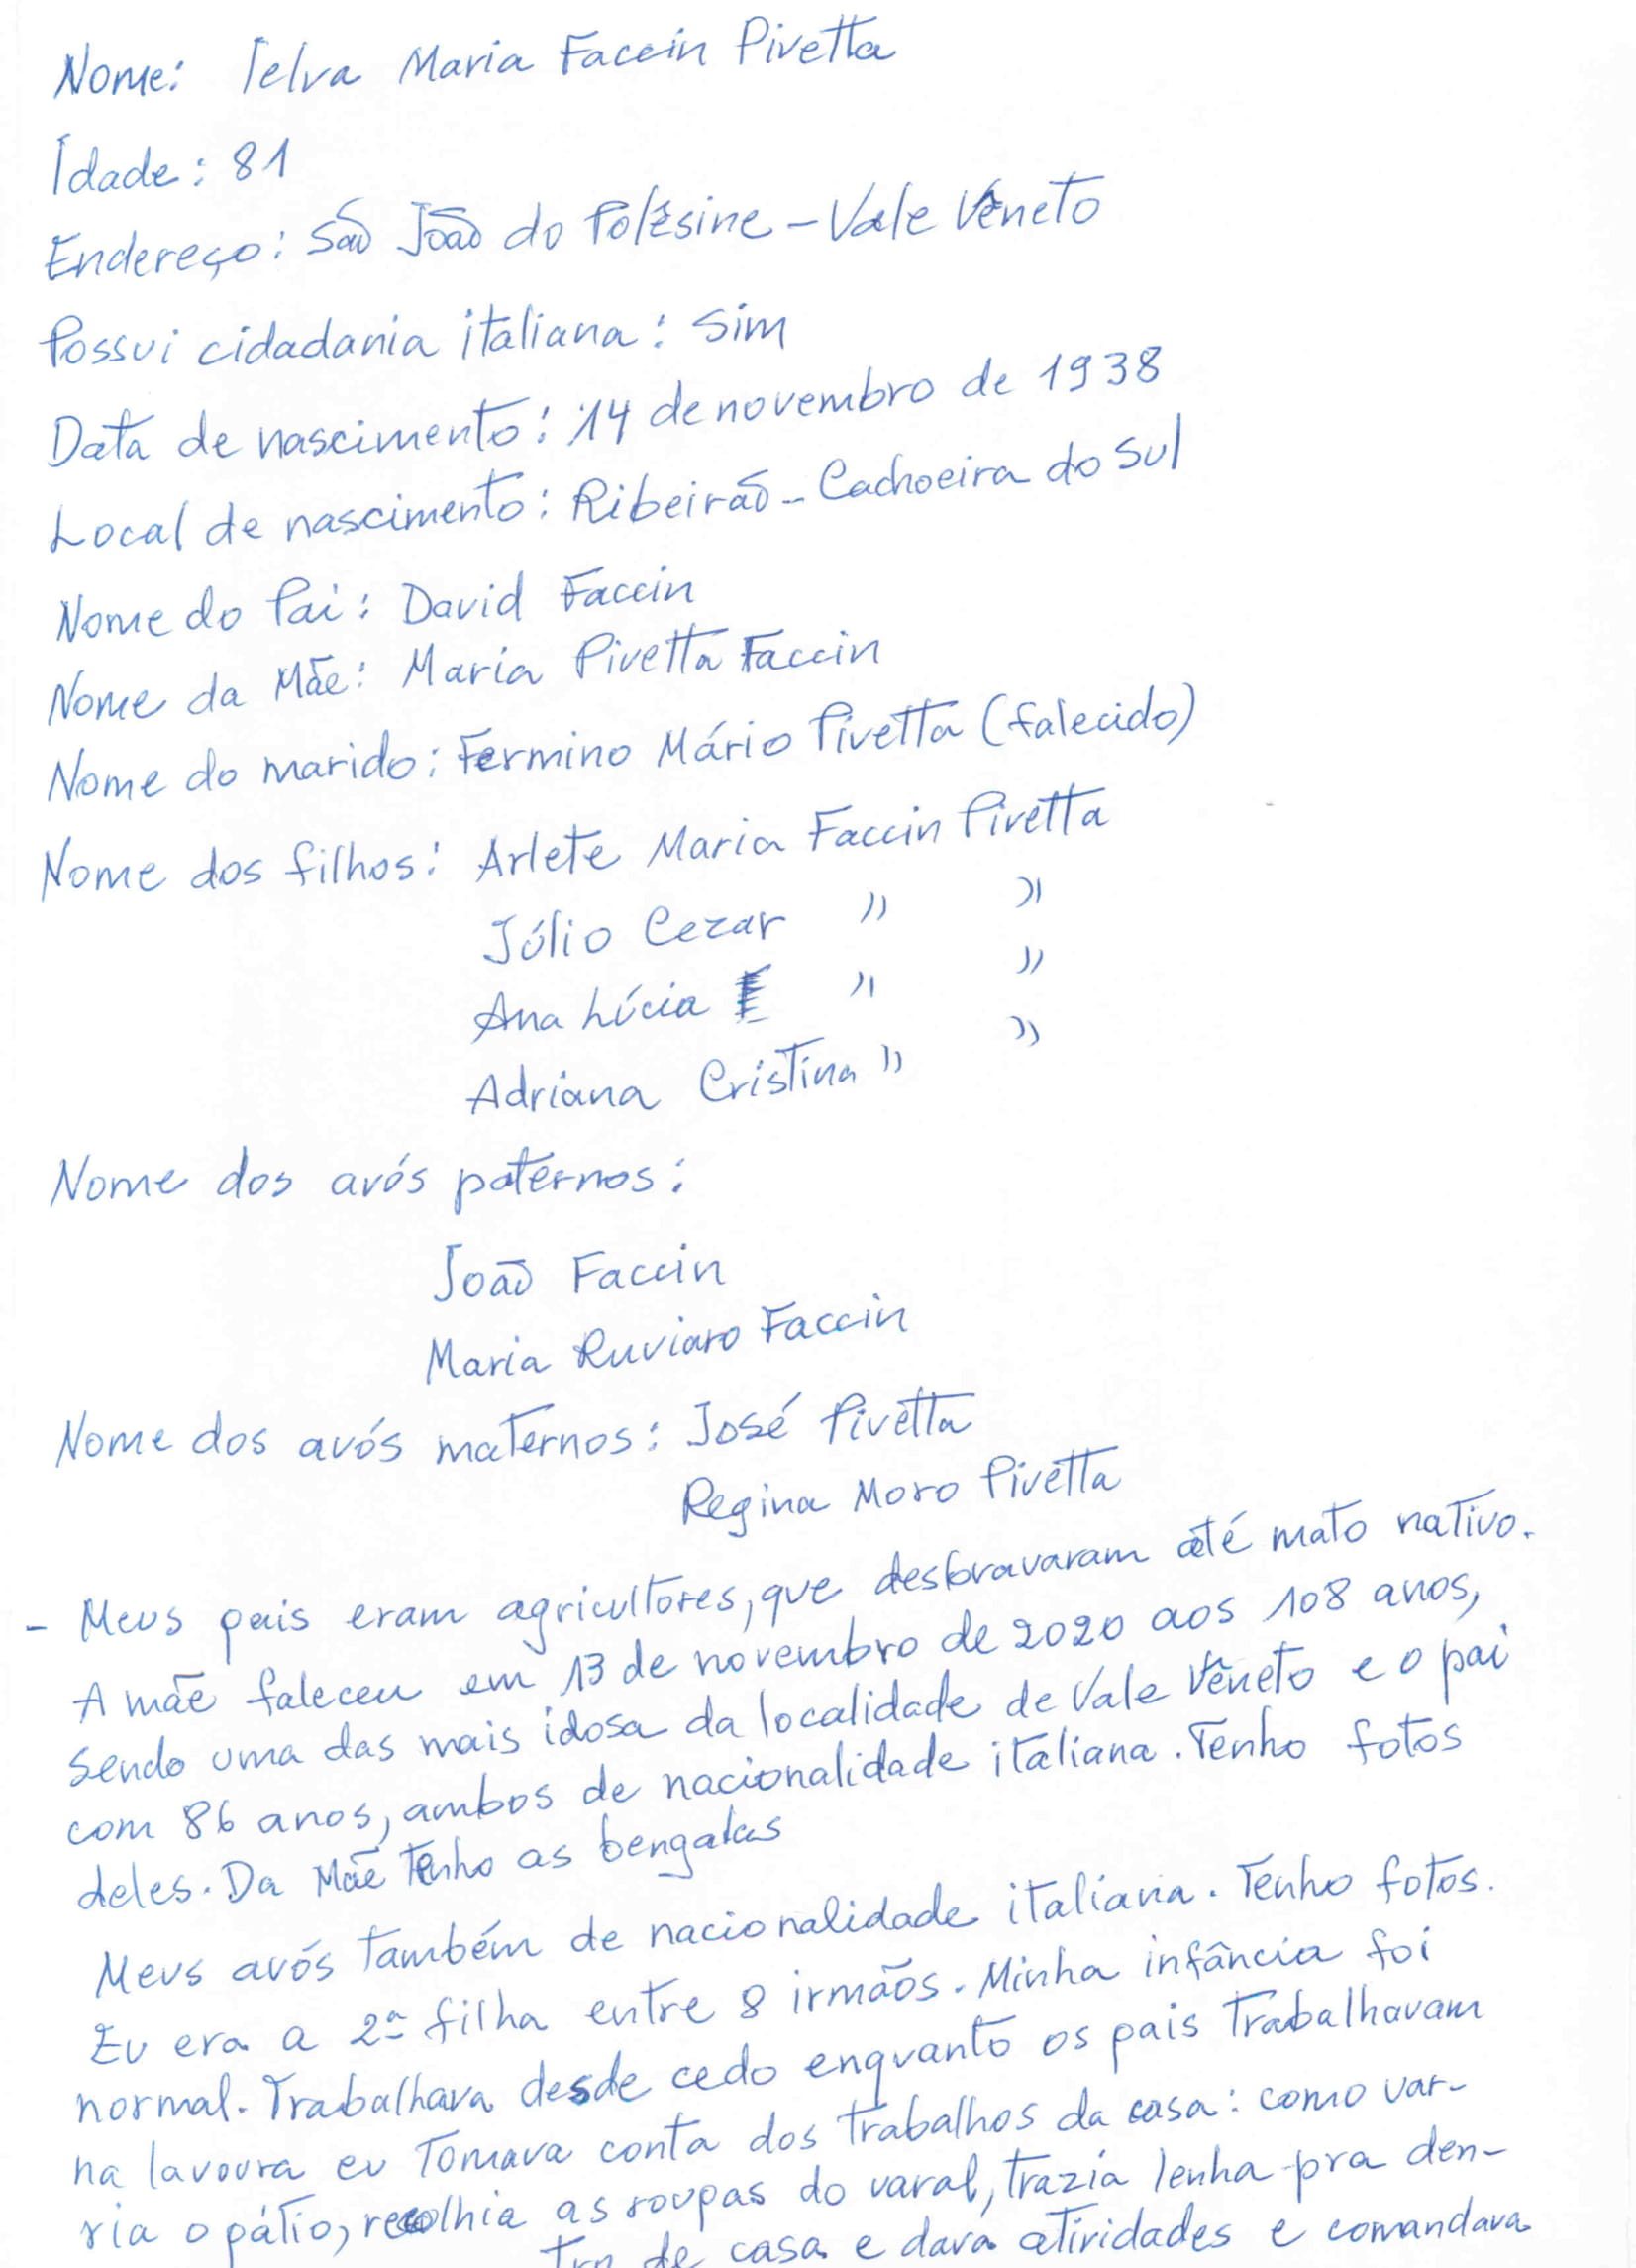 Nome: Telva Maria Faccin Pivetta
Idade: 81
Endereço: São João do Polêsine - Vale Vêneto
Possui cidadania italiana: Sim
Data de nascimento: 14 de novembro de 1938
Local de nascimento: Ribeirão - Cachoeira do Sul
Nome do Pai: David Faccin
Nome da Mãe: Maria Pivetta Faccin
Nome do marido: Fermino Mário Pivetta (falecido)
Nome dos filhos: Arlete Maria Faccin Pivetta
Júlio Cezar " "
Ana Lúcia " "
Adriana Cristina " "
Nome dos avós paternos:
João Faccin
Maria Ruviaro Faccin
Nome dos avós maternos: José Pivetta
Regina Moro Pivetta
- Meus pais eram agricultores, que desbravaram até mato nativo.
A mãe faleceu em 13 de novembro de 2020 aos 108 anos,
sendo uma das mais idosa da localidade de Vale Vêneto e o pai
com 86 anos, ambos de nacionalidade italiana. Tenho fotos
deles. Da Mãe Tenho as bengalas
Meus avós também de nacionalidade italiana. Tenho fotos.
Eu era a 2ª filha entre 8 irmãos. Minha infância foi
normal. Trabalhava desde cedo enquanto os pais Trabalhavam
na lavoura eu Tomava conta dos trabalhos da casa: como var-
ria o pátio, recolhia as roupas do varal, trazia lenha pra den-
tro de casa e dava atividades e comandava